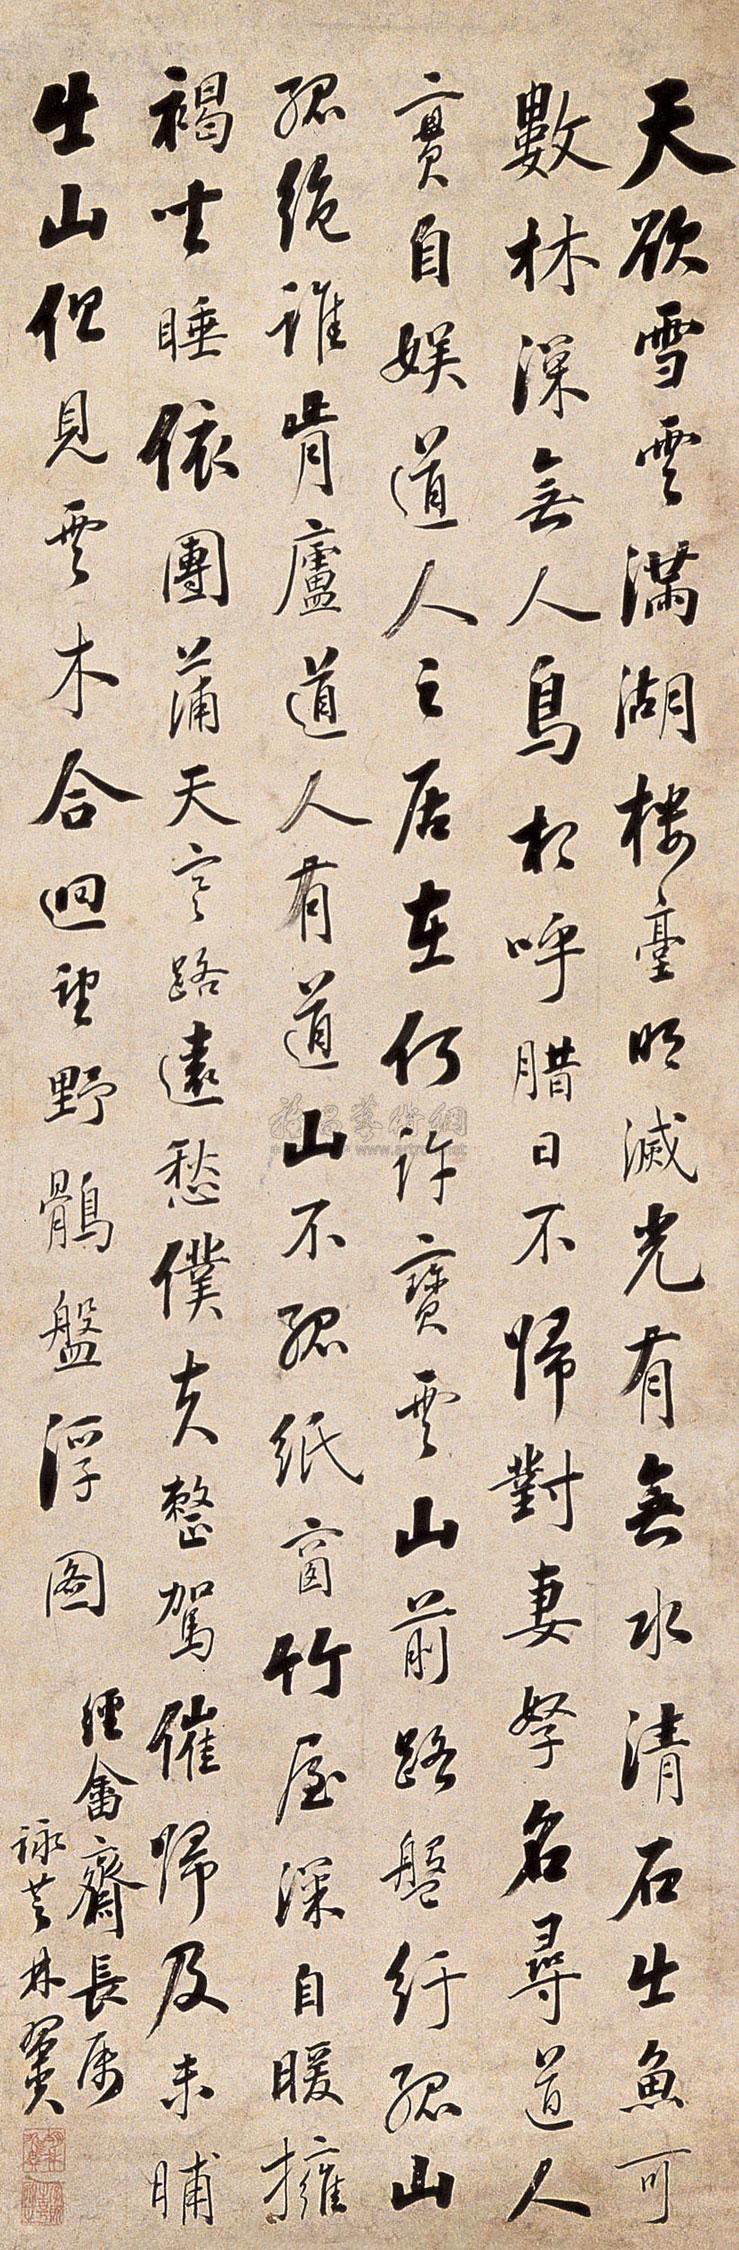 天欲雪雲滿湖樓臺明滅光有無水清石出魚可
數林深無人鳥相呼臘日不歸對妻孥名尋道人
實自娛道人之居在何許寶雲山前路盤紆孤山
孤絕誰肯廬道人有道山不孤紙窗竹屋深自暖擁
褐坐睡依團蒲天寒路遠愁僕夫整駕催歸及未晡
出山但見雲木合迴望野鶻盤浮图
經畬齋長屬
詠芝林翼
雅昌藝術網
www.artron.net